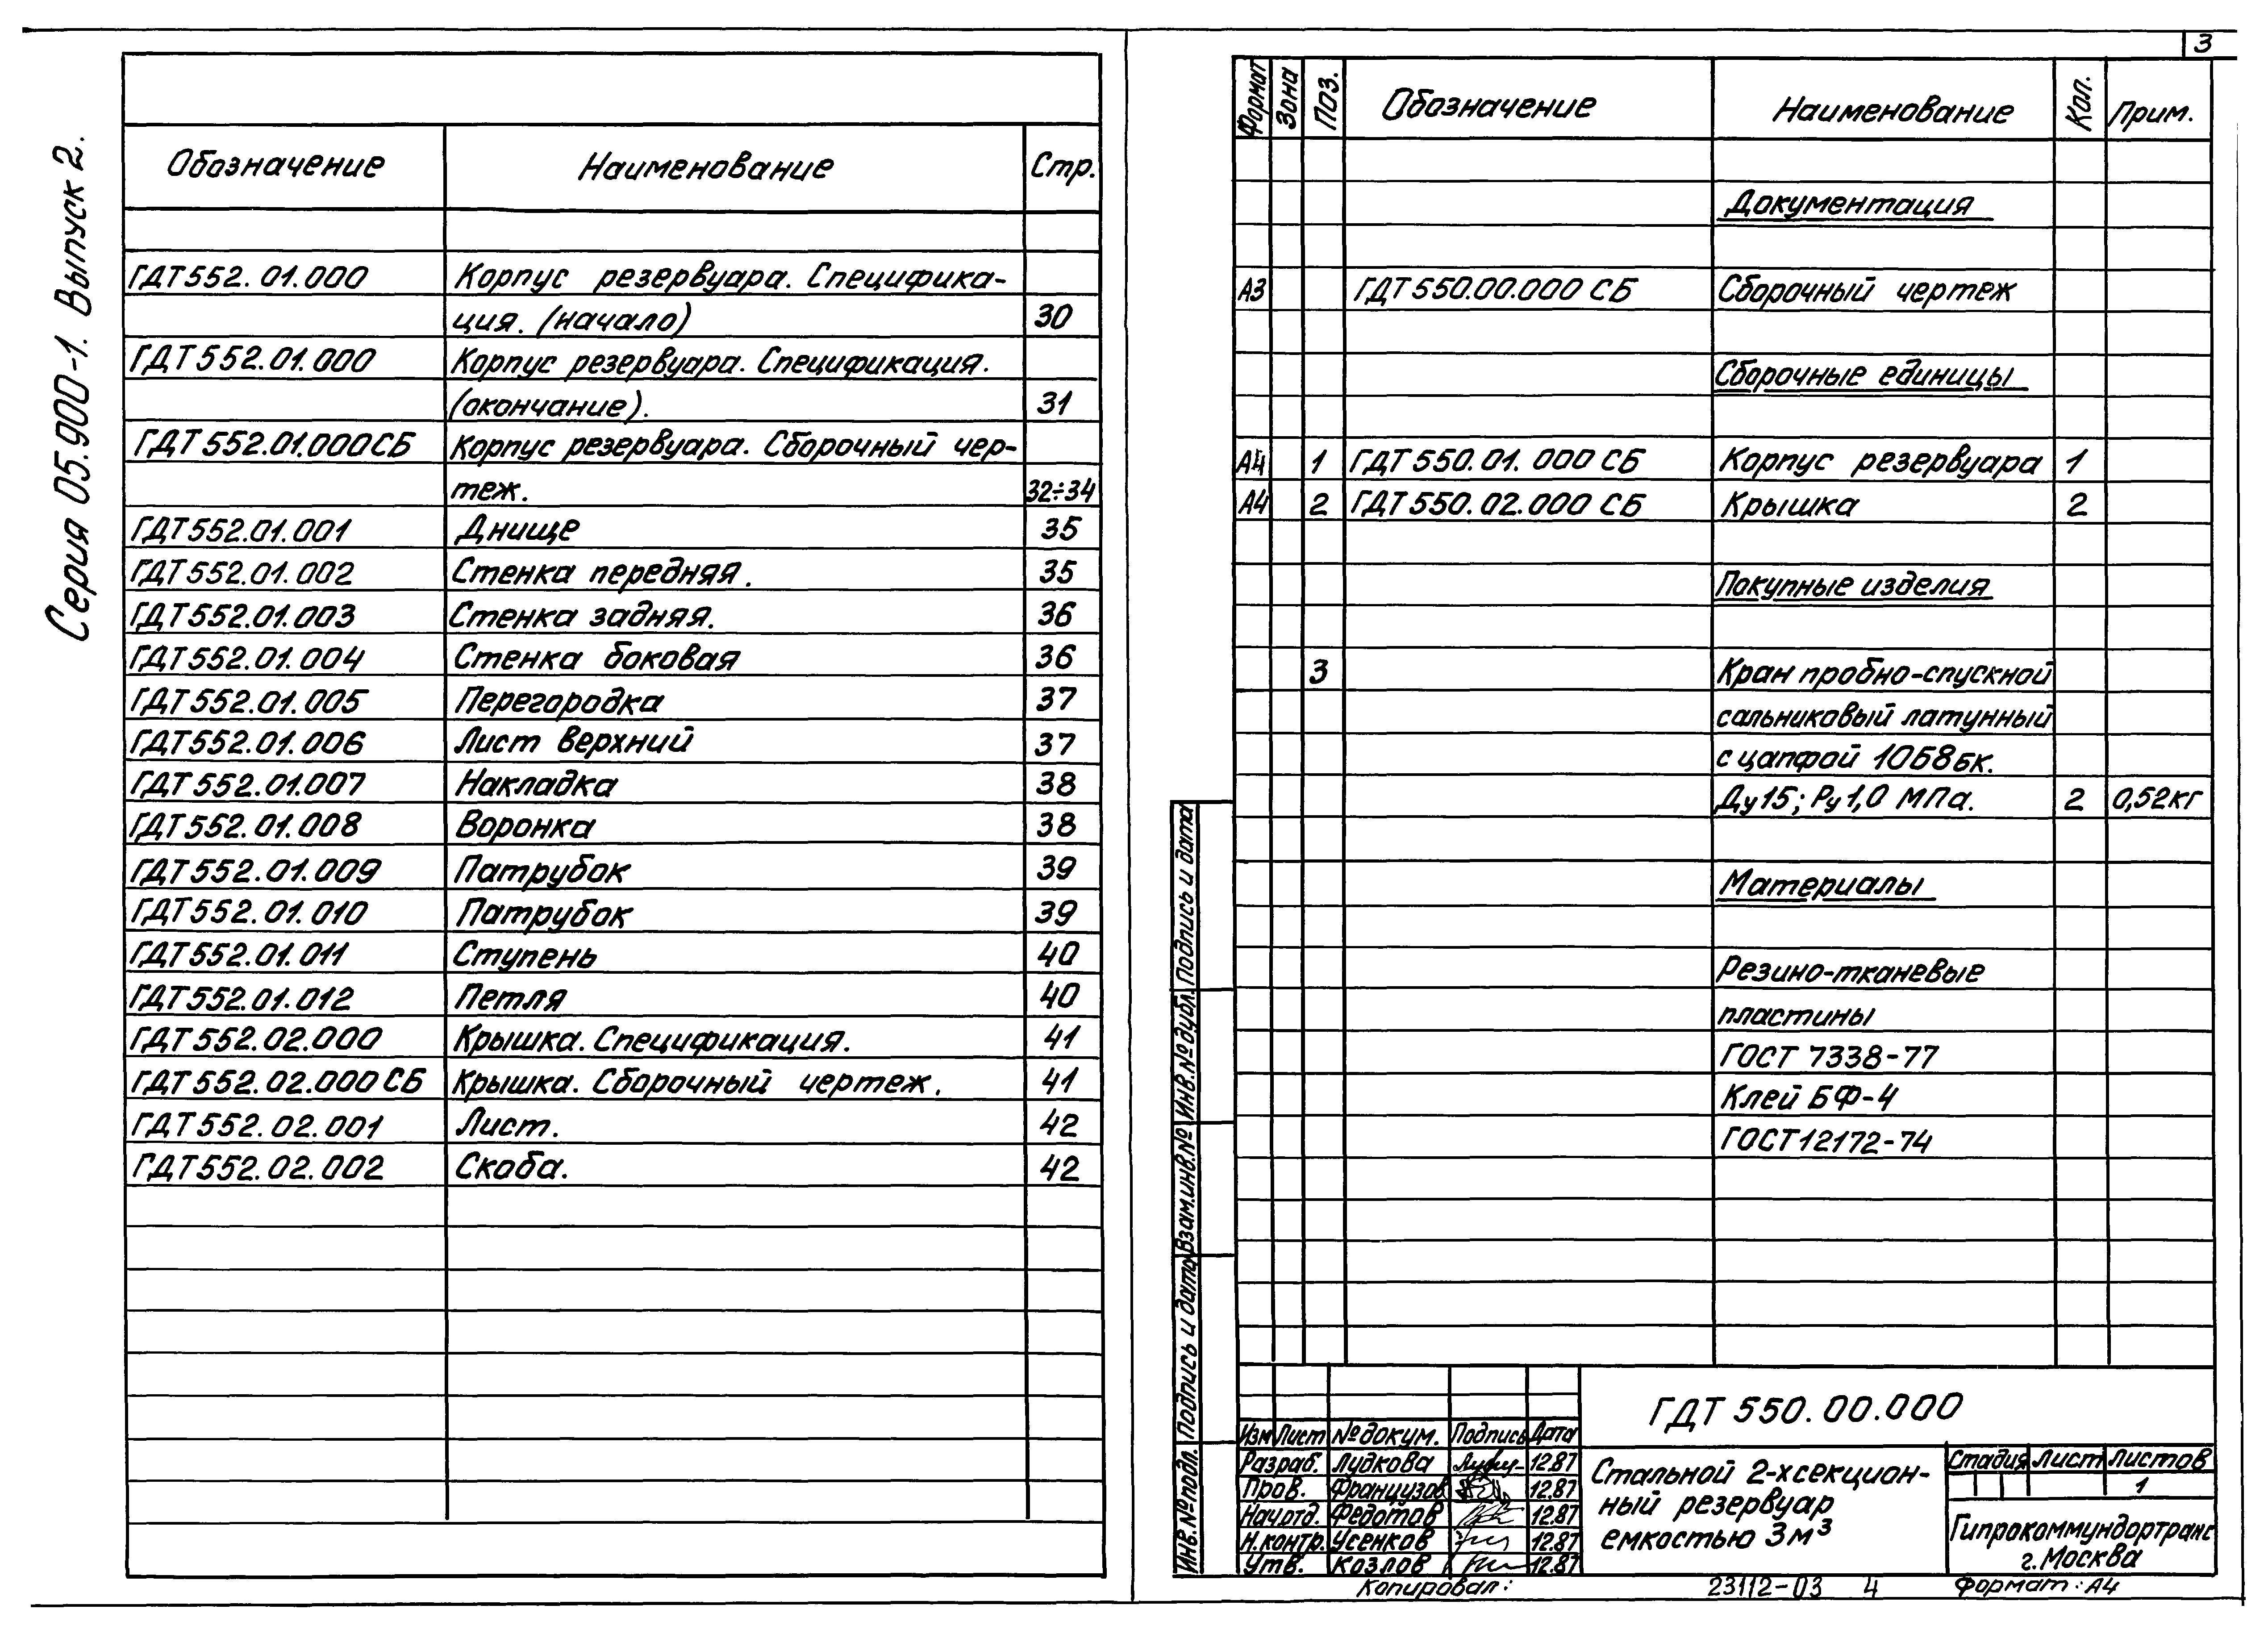 Серия 05.900-1. Выпуск 2.
Обозначение Наименование Стр.
ГДТ552.01.000 Корпус резервуара. Специфика-
ция. (начало) 30
ГДТ552.01.000 Корпус резервуара. Спецификация.
(окончание). 31
ГДТ552.01.000СБ Корпус резервуара. Сборочный чер-
теж. 32÷34
ГДТ552.01.001 Днище 35
ГДТ552.01.002 Стенка передняя. 35
ГДТ552.01.003 Стенка задняя. 36
ГДТ552.01.004 Стенка боковая 36
ГДТ552.01.005 Перегородка 37
ГДТ552.01.006 Лист верхний 37
ГДТ552.01.007 Накладка 38
ГДТ552.01.008 Воронка 38
ГДТ552.01.009 Патрубок 39
ГДТ552.01.010 Патрубок 39
ГДТ552.01.011 Ступень 40
ГДТ552.01.012 Петля 40
ГДТ552.02.000 Крышка. Спецификация. 41
ГДТ552.02.000СБ Крышка. Сборочный чертеж. 41
ГДТ552.02.001 Лист. 42
ГДТ552.02.002 Скоба. 42
3
Формат Зона Поз. Обозначение Наименование Кол. Прим.
Документация
А3 ГДТ550.00.000 СБ Сборочный чертеж
Сборочные единицы
А4 1 ГДТ550.01.000 СБ Корпус резервуара 1
А4 2 ГДТ550.02.000 СБ Крышка 2
Покупные изделия
3 Кран пробно-спускной
сальниковый латунный
с цапфой 10Б8бк.
Ду15; Ру1,0 МПа. 2 0,52кг
Материалы
Резино-тканевые
пластины
ГОСТ 7338-77
Клей БФ-4
ГОСТ12172-74
Инв.№подл. Подпись и дата Взам.инв.№ Инв.№дубл. Подпись и дата
ГДТ 550.00.000
Изм Лист №докум. Подпись Дата
Разраб. Лудкова 12.87
Пров. Французов 12.87
Нач.отд. Федотов 12.87
Н.контр. Усенков 12.87
Утв. Козлов 12.87
Стальной 2-хсекцион-
ный резервуар
емкостью 3м³
Стадия Лист Листов
1
Гипрокоммундортранс
г.Москва
Копировал: 23112-03 4 Формат: А4